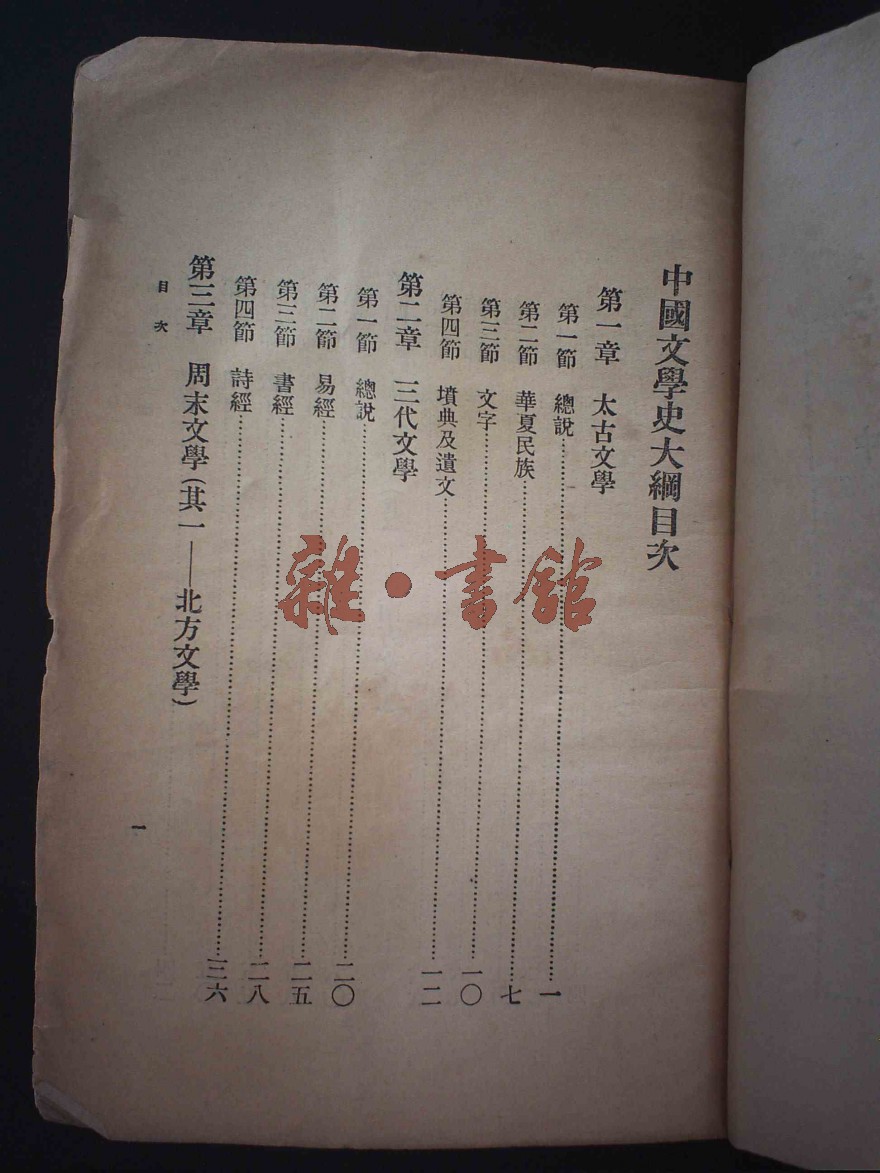 中國文學史大綱目次
第一章 太古文學
第一節 總說……一
第二節 華夏民族……七
第三節 文字……一〇
第四節 墳典及遺文……一二
第二章 三代文學
第一節 總說……二〇
第二節 易經……二五
第三節 書經……二八
第四節 詩經……三六
第三章 周末文學(其一——北方文學)
目次
一
雜·書館